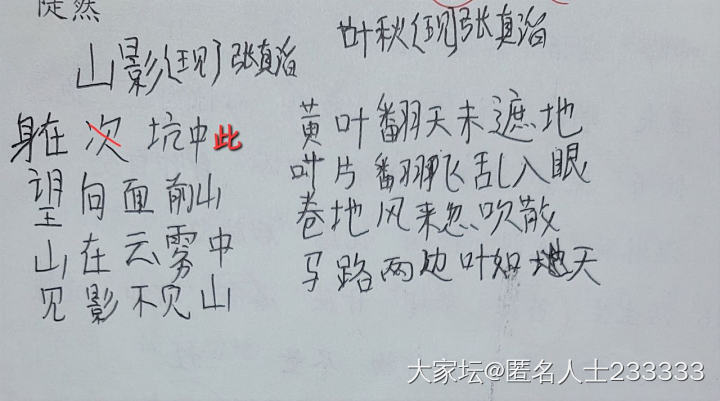 陡然
山影(现)张真治
身在次坑中此
望向面前山
山在云雾中
见影不见山
叶秋(现)张真治
黄叶翻天未遮地
叶片翻翔飞乱入眼
卷地风来忽吹散
马路两边叶如地天
大家坛@匿名人士233333